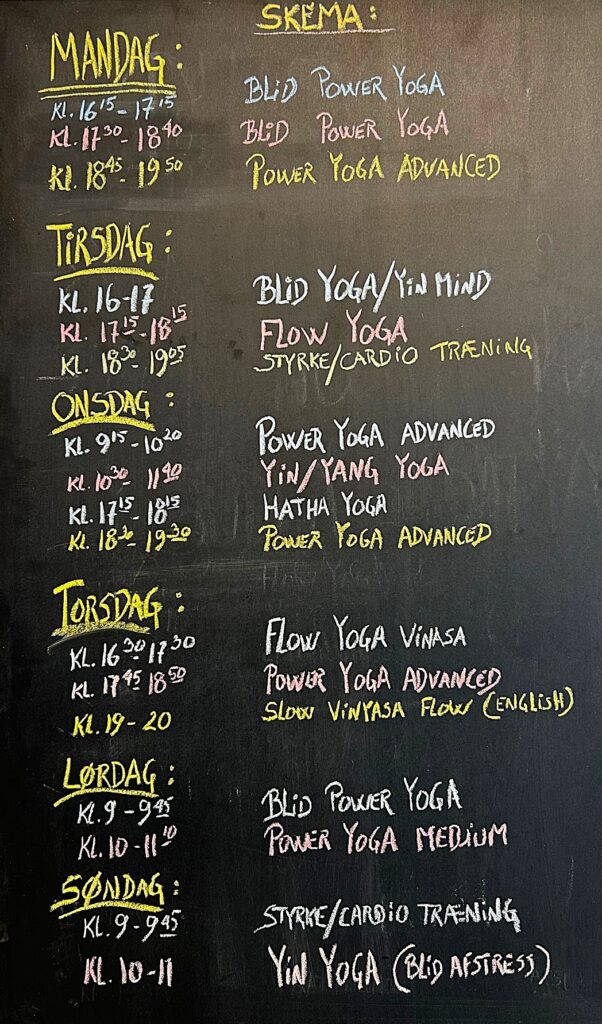 SKEMA:
MANDAG:
KL. 16 15 - 17 15 BLiD POWER YOGA
KL. 17 30 - 18 40 BLiD POWER YOGA
KL. 18 45 - 19 50 POWER YOGA ADVANCED
TiRSDAG:
KL. 16-17 BLiD YOGA/YiN MiND
KL. 17 15 - 18 15 FLOW YOGA
KL. 18 30 - 19 05 STYRKE/CARDiO TRÆNiNG
ONSDAG:
KL. 9 15 - 10 20 POWER YOGA ADVANCED
KL. 10 30 - 11 40 YiN/YANG YOGA
KL. 17 15 - 18 15 HATHA YOGA
KL. 18 30 - 19 30 POWER YOGA ADVANCED
TORSDAG:
KL. 16 30 - 17 30 FLOW YOGA ViNASA
KL. 17 45 - 18 50 POWER YOGA ADVANCED
KL. 19 - 20 SLOW ViNYASA FLOW (ENGLiSH)
LØRDAG:
KL. 9 - 9 45 BLiD POWER YOGA
KL. 10 - 11 10 POWER YOGA MEDiUM
SØNDAG:
KL. 9 - 9 45 STYRKE/CARDiO TRÆNiNG
KL. 10-11 YiN YOGA (BLiD AFSTRESS)